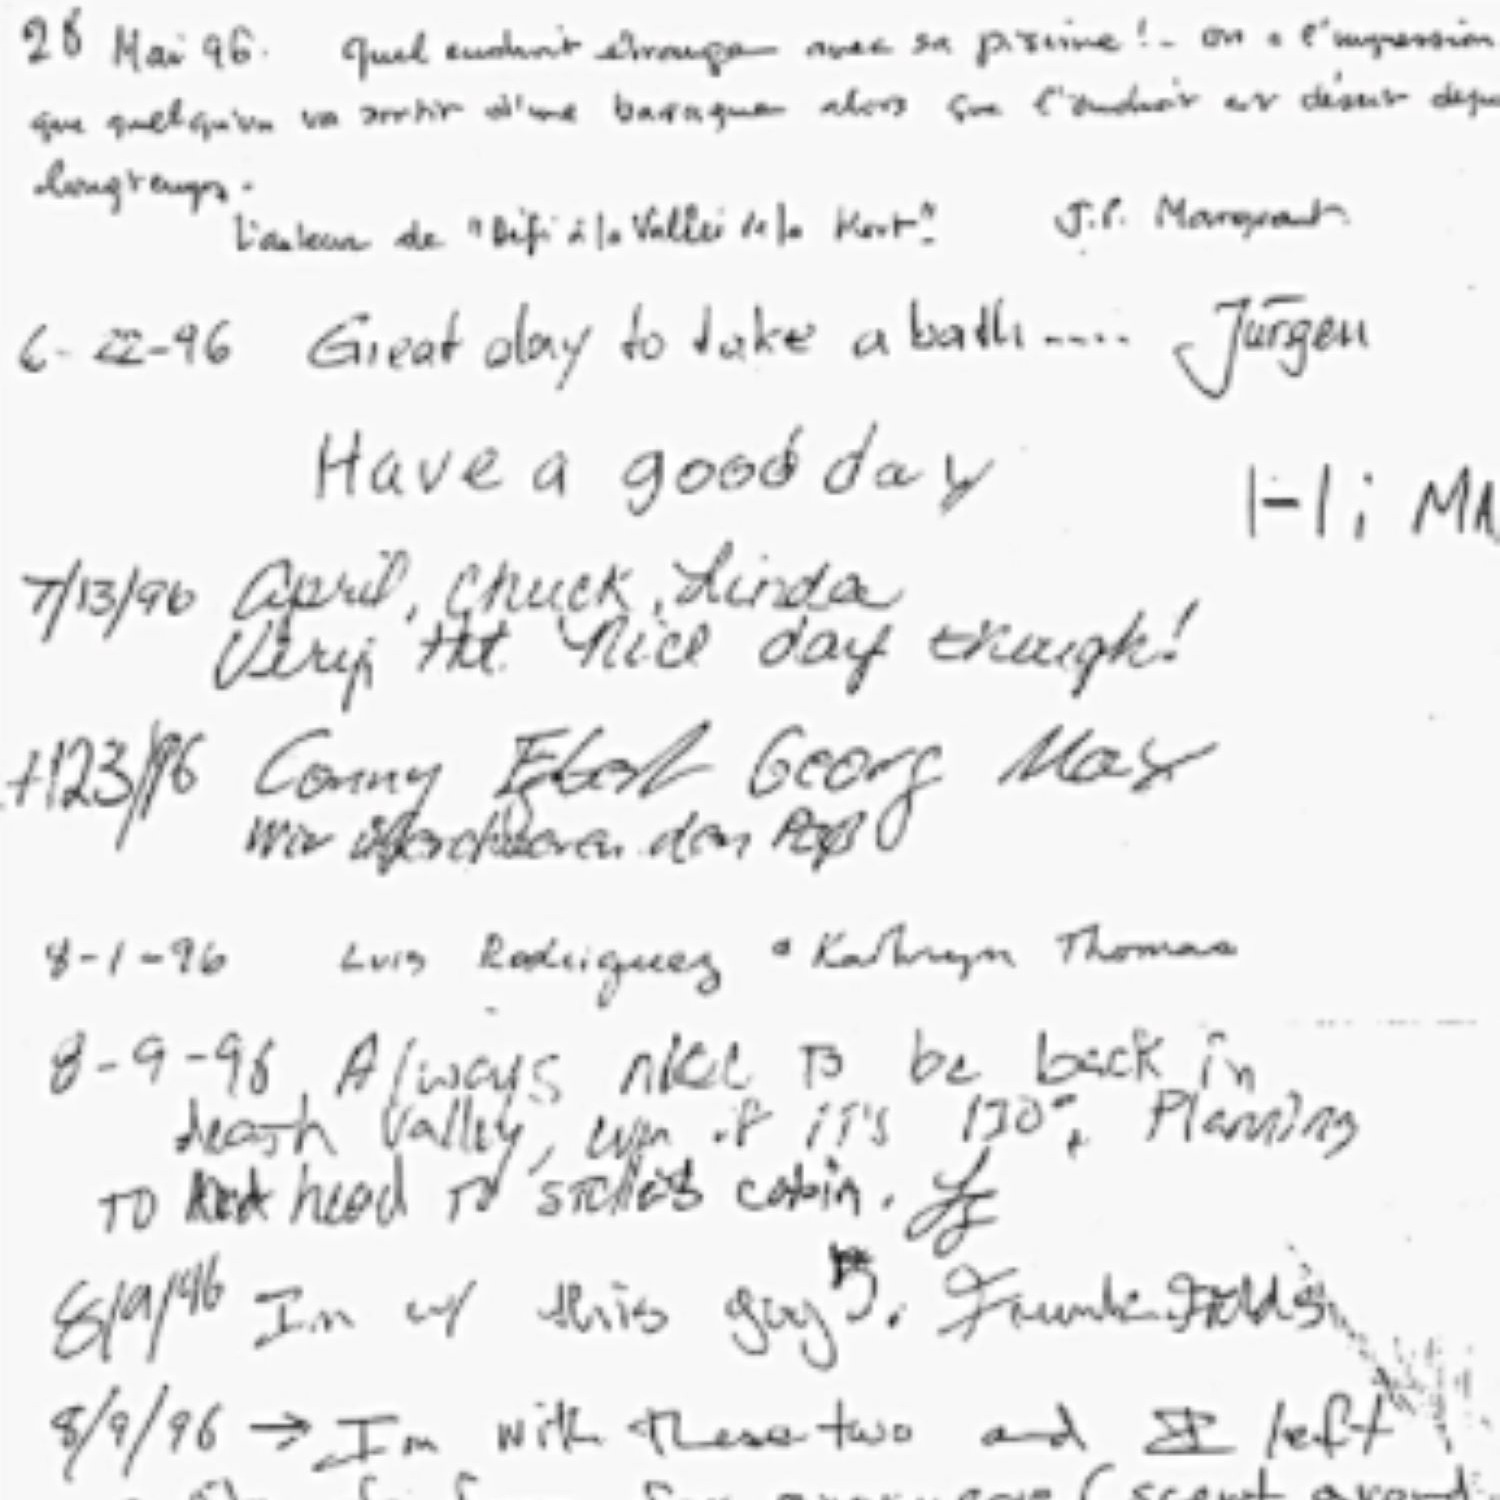 28 Mai 96. Quel endroit étrange avec sa piscine! - on a l'impression
que quelqu'un va sortir d'une baraque alors que l'endroit est désert depu
longtemps.
L'auteur de "Défi à la Vallée de la Mort". J.P.
6-22-96 Great day to take a bath ..... Jürgen
Have a good day
Hi MA
7/13/96 April, Chuck, Linda
Very Hot. Nice day though!
123/96 Conny Georg May
Wir den
8-1-96 Luis Rodriguez • Kathryn Thomas
8-9-96 Always nice to be back in
death Valley, even if it's 130°. Planning
TO head TO cabin.
8/9/96 I'm w/ this guy.
8/9/96 → I'm with these two and I left
(scent around